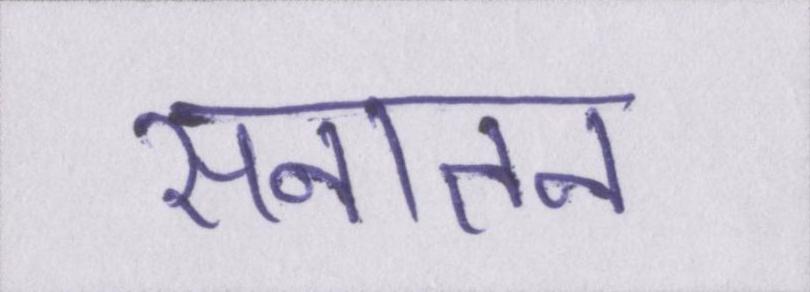 सनातन